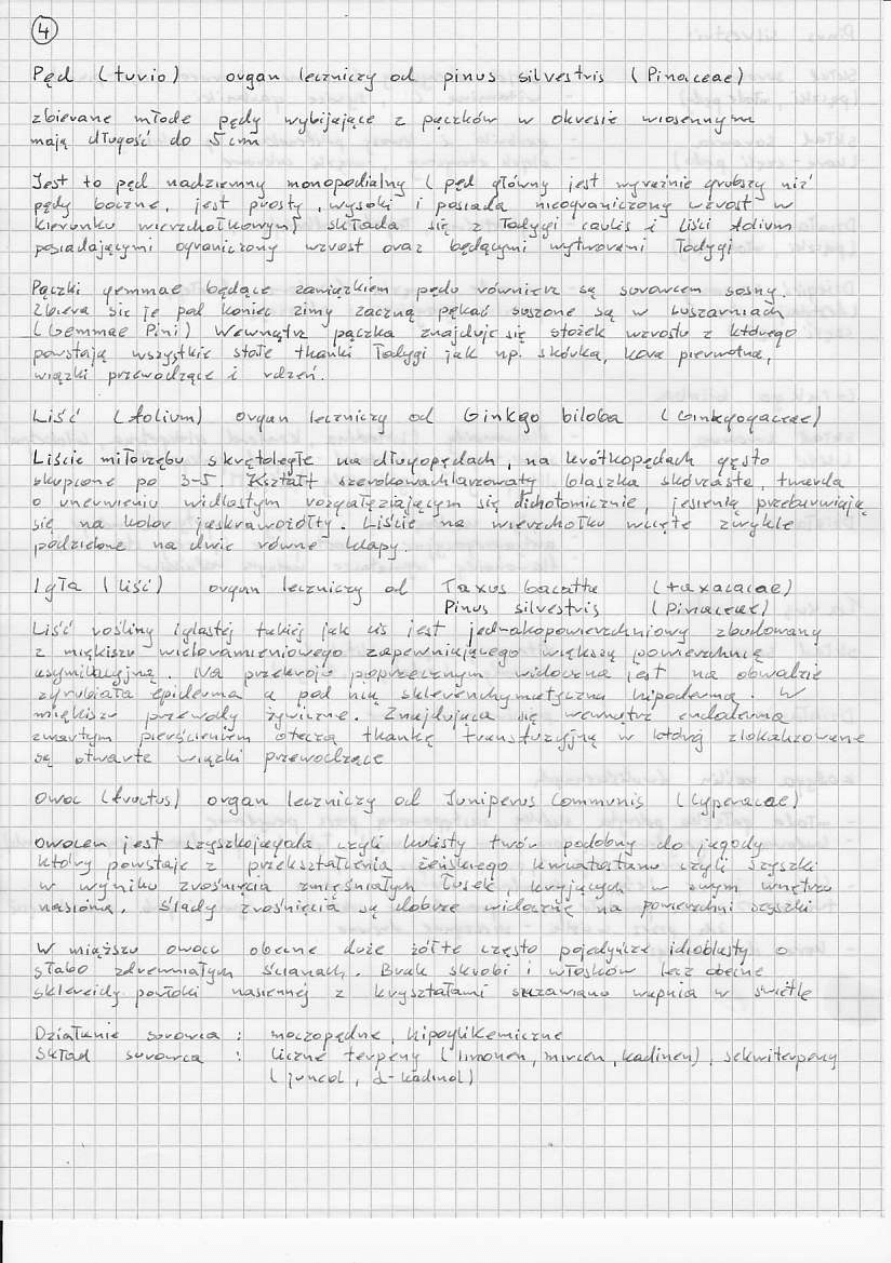 4
Pęd (turio) organ leczniczy od pinus silvestris (Pinaceae)
zbierane młode pędy wybijające z pączków w okresie wiosennym
mają długość do 5 cm
Jest to pęd nadziemny monopodialny (pęd główny jest wyraźnie grubszy niż
pędy boczne, jest prosty, wysoki i posiada nieograniczony wzrost w
kierunku wierzchołkowym) składa się z łodygi caulis i liści folium
posiadającymi ograniczony wzrost oraz będącymi wytworami łodygi
Pączki gemmae będące zawiązkiem pędu również są surowcem sosny.
Zbiera się je pod koniec zimy zaczną pękać suszone są w suszarniach
(Gemmae Pini) Wewnątrz pączka znajduje się stożek wzrostu z którego
powstają wszystkie stałe tkanki łodygi jak np. skórka, kora pierwotna,
wiązki przewodzące i rdzeń.
Liść (folium) organ leczniczy od Ginkgo biloba (Ginkgogaceae)
Liście miłorzębu skrętoległe na długopędach, na krótkopędach gęsto
skupione po 3-5. Kształt szerokowachlarzowaty blaszka skórzasta, twarda
o unerwieniu widlastym rozgałęziającym się dichotomicznie, jesienią przebarwiają
się na kolor jaskrawożółty. Liście na wierzchołku wcięte zwykle
podzielone na dwie równe klapy.
Igła (liść) organ leczniczy od Taxus bacatta (taxacacae)
Pinus silvestris (Pinaceae)
Liść rośliny iglastej takiej jak cis jest jednakopowierzchniowy zbudowany
z miękiszu wieloramieniowego zapewniającego większą powierzchnię
asymilacyjną. Na przekroju poprzecznym widoczna jest na obwodzie
zgrubiała epiderma a pod nią sklerenchymatyczna hipoderma. W
miękiszu przewody żywiczne. Znajdująca się wewnątrz endoderma
zwartym pierścieniem otacza tkankę transfuzyjną w której zlokalizowane
są otwarte wiązki przewodzące
Owoc (fructus) organ leczniczy od Juniperus Communis (Cyperacae)
Owocem jest szyszkojagoda czyli kulisty twór podobny do jagody
który powstaje z przekształcenia żeńskiego kwiatostanu czyli szyszki
w wyniku zrośnięcia zmięśniałych łusek, kryjących w swym wnętrzu
nasiona. Ślady zrośnięcia są dobrze widoczne na powierzchni szyszki
W miąższu owocu obecne duże żółte często pojedyńcze idioblasty o
słabo zdrewniałym ścianach. Brak skrobi i włosków lecz obecne
sklereidy powłoki nasiennej z kryształami szczawianu wapnia w świetle
Działanie surowca : moczopędne, hipoglikemiczne
Skład surowca : liczne terpeny (limonen, mircen, kadinen), sekwiterpeny
(juneol, α-kadinol)